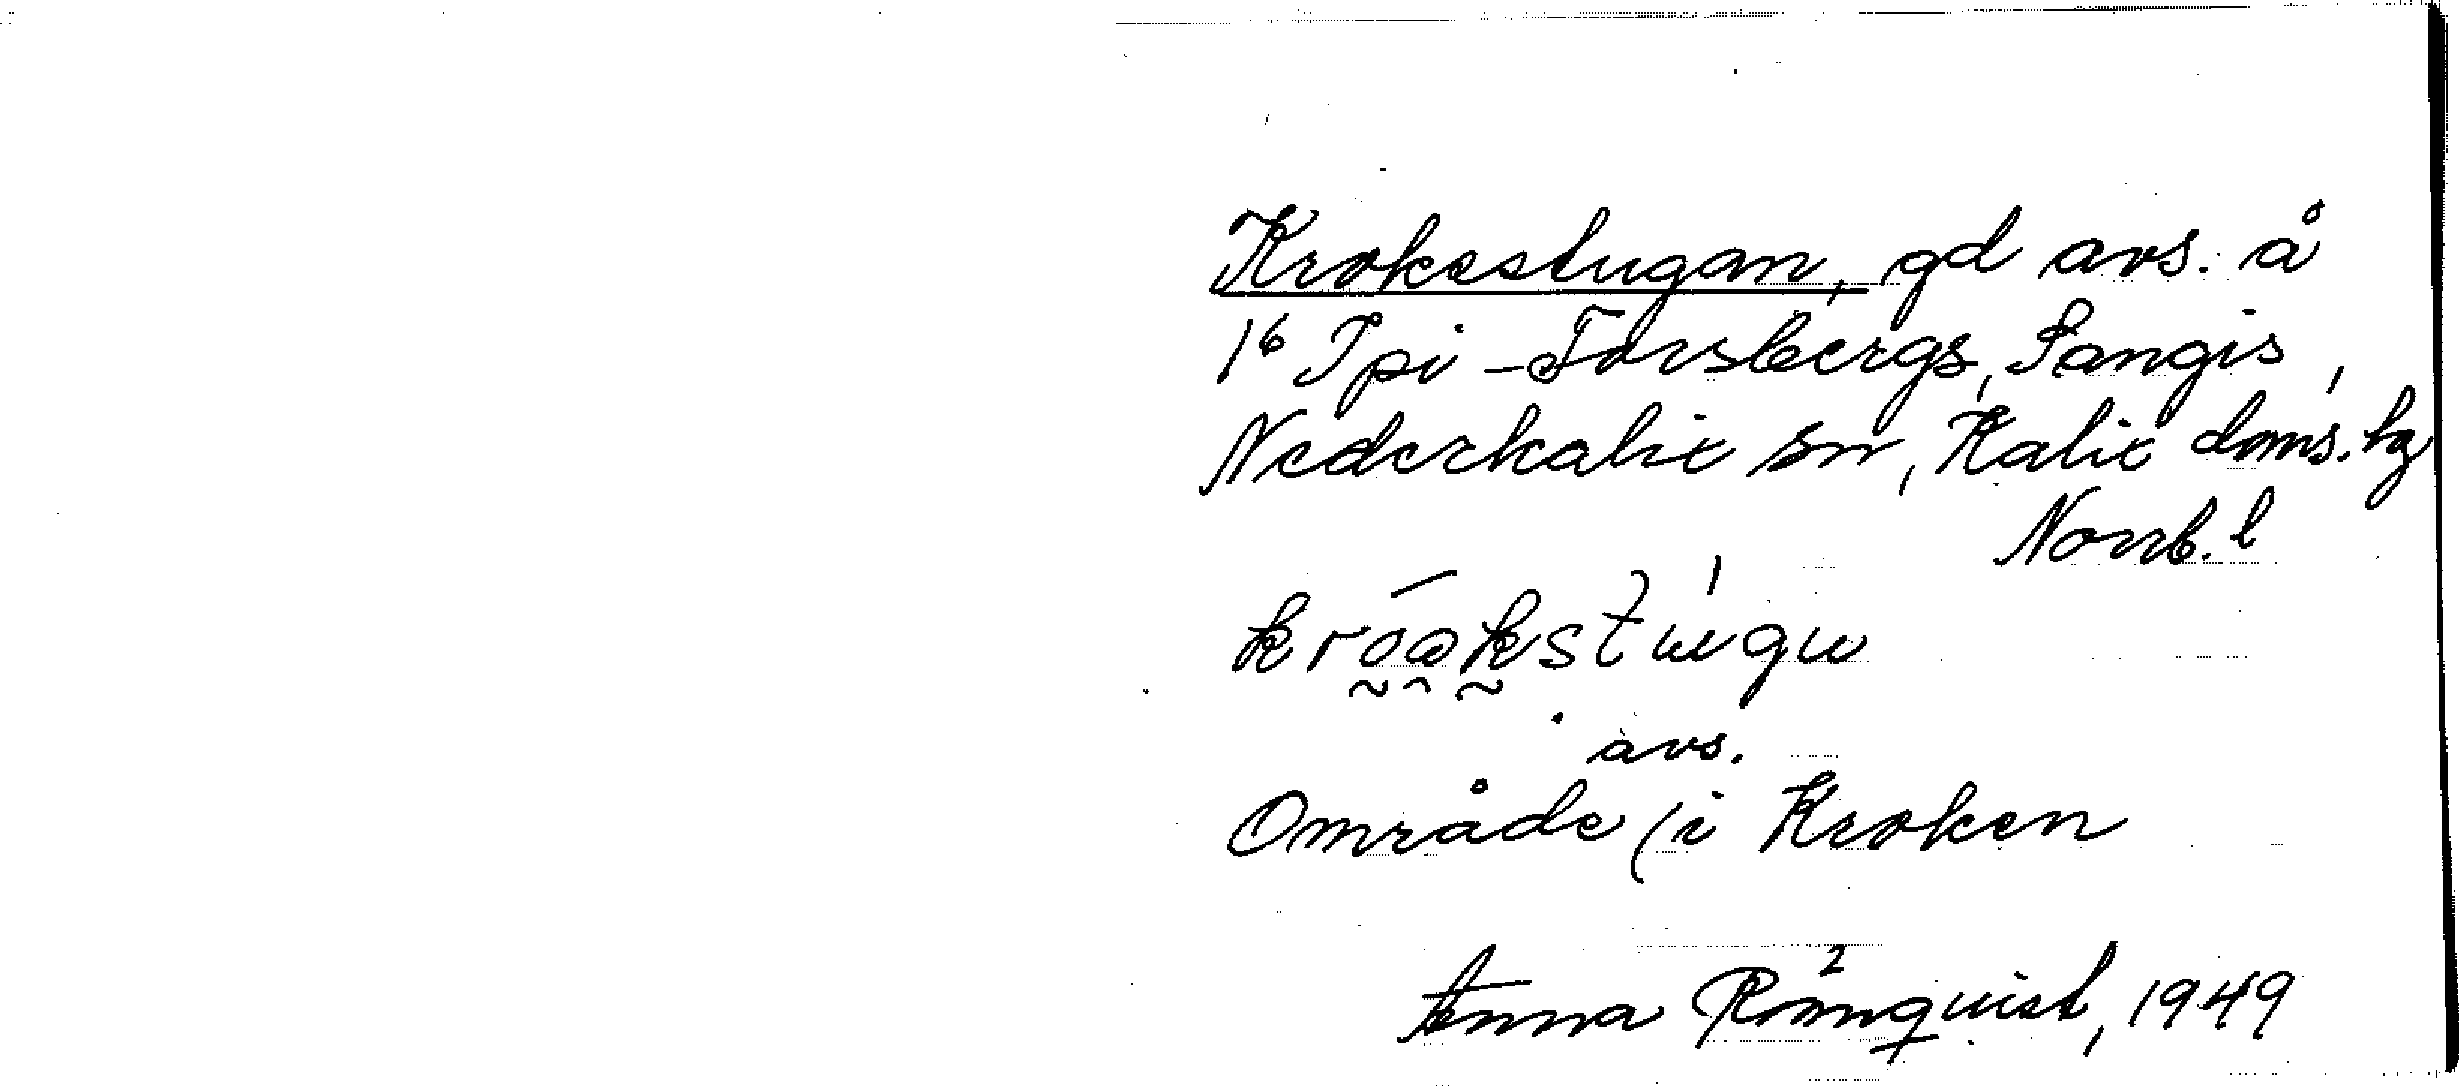 Krokestugan, gd avs. å
1⁶ Ipi-Forsbergs, Sangis,
Nederkalix sn, Kalix doms. hg
Norrb. l
avs.
Område (i Kroken
Anna Rönnquist, 1949